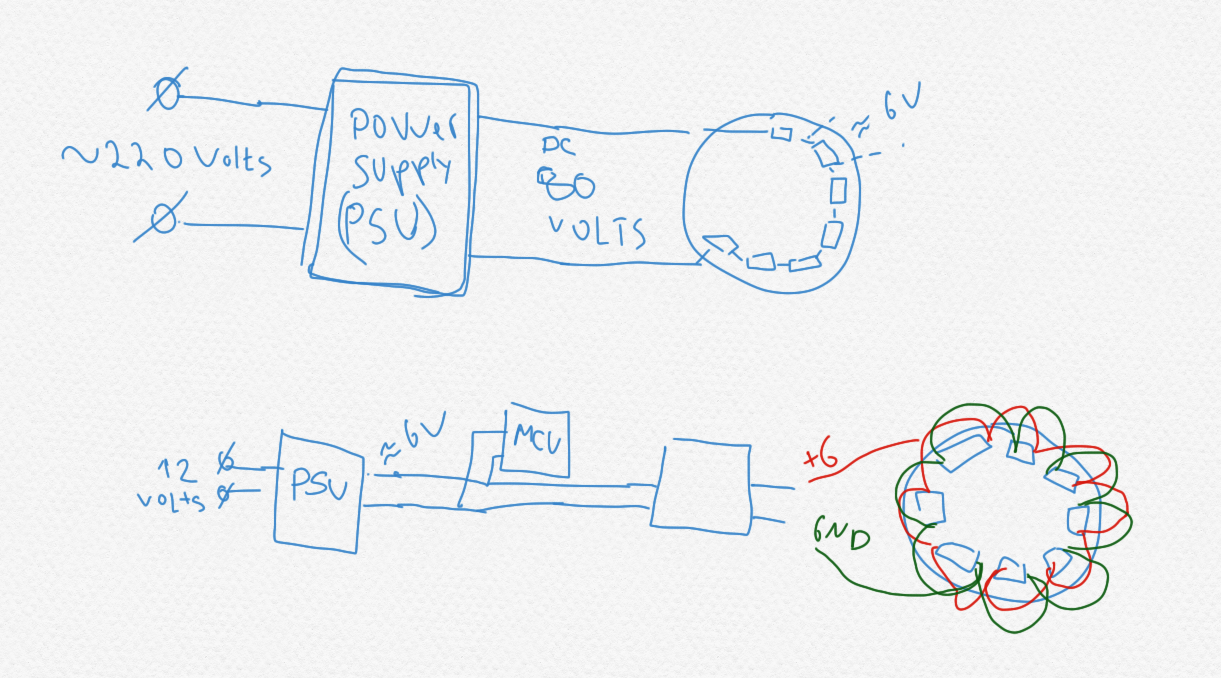 ~220 Volts
POWer
supply
(PSU)
DC
80
VOLTS
≈ 6V
12
volts
PSU
≈6V
MCU
+6
GND